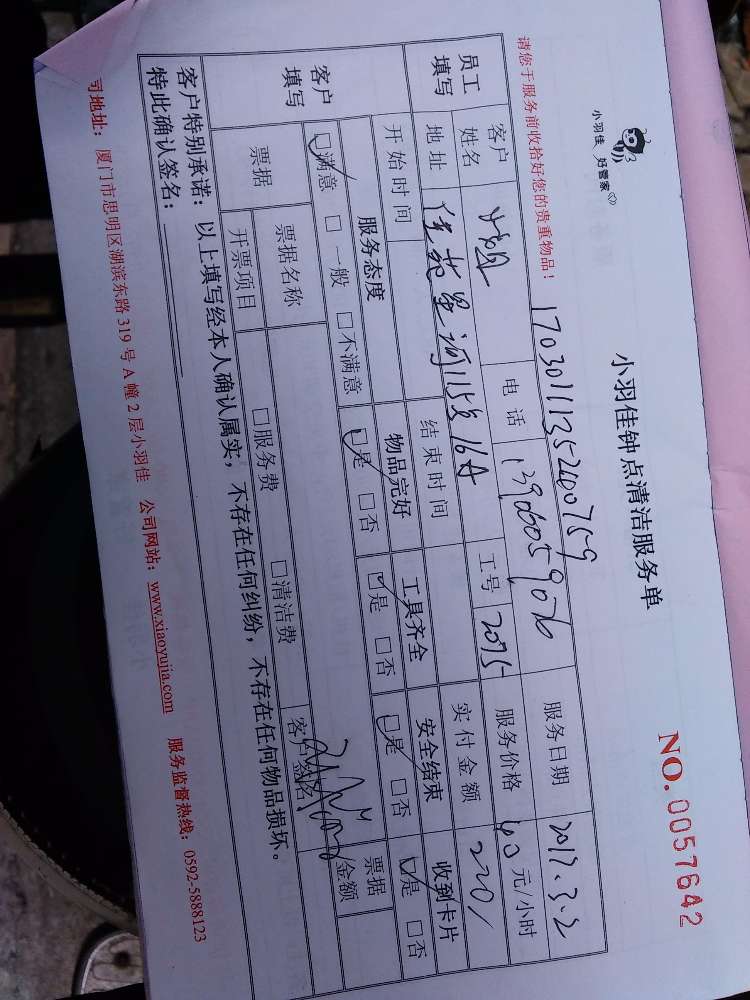 小羽佳 好管家
小羽佳钟点清洁服务单
NO.0057642
请您于服务前收拾好您的贵重物品!
17030111352400759
员工填写
客户姓名
电话 13906059076
服务日期 2017.3.2
地址
115号16A
工号 2075
服务价格 40元/小时
开始时间
结束时间
实付金额 220/
客户填写
服务态度
物品完好
工具齐全
安全结束
收到卡片
☑满意 □一般 □不满意
☑是 □否
☑是 □否
☑是 □否
☑是 □否
票据
票据名称
票据金额
开票项目
□服务费 □清洁费
客户签名
客户特别承诺:以上填写经本人确认属实,不存在任何纠纷,不存在任何物品损坏。
特此确认签名:
司地址:厦门市思明区湖滨东路319号A幢2层小羽佳 公司网站:www.xiaoyujia.com 服务监督热线:0592-5888123